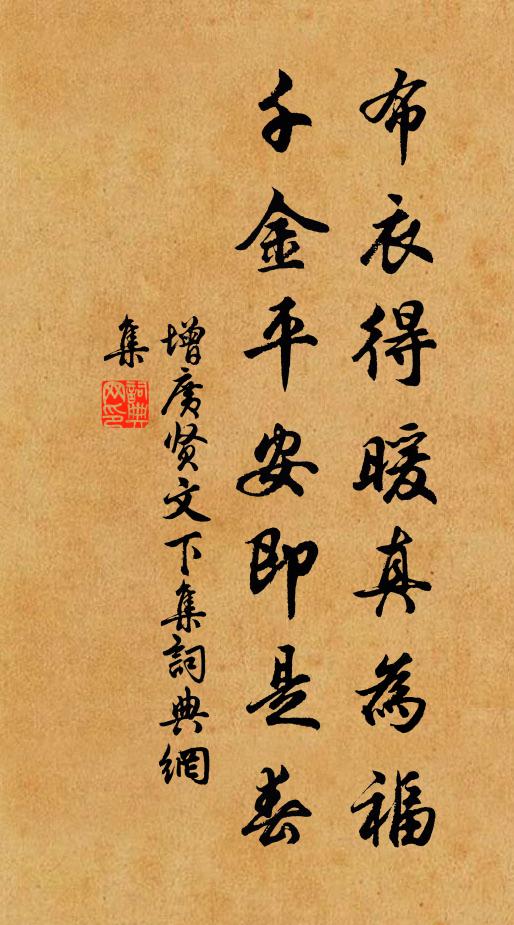 布衣得暖真為福
千金平安即是春
增廣贤文下集詞典網
集
詞典
网印